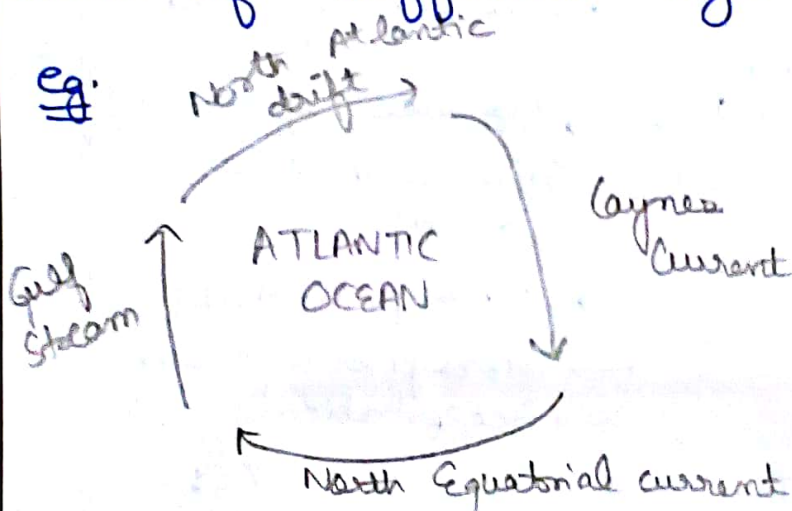 eg.
North Atlantic
drift
Caynes
Current
ATLANTIC
OCEAN
Gulf
Stream
North Equatorial current